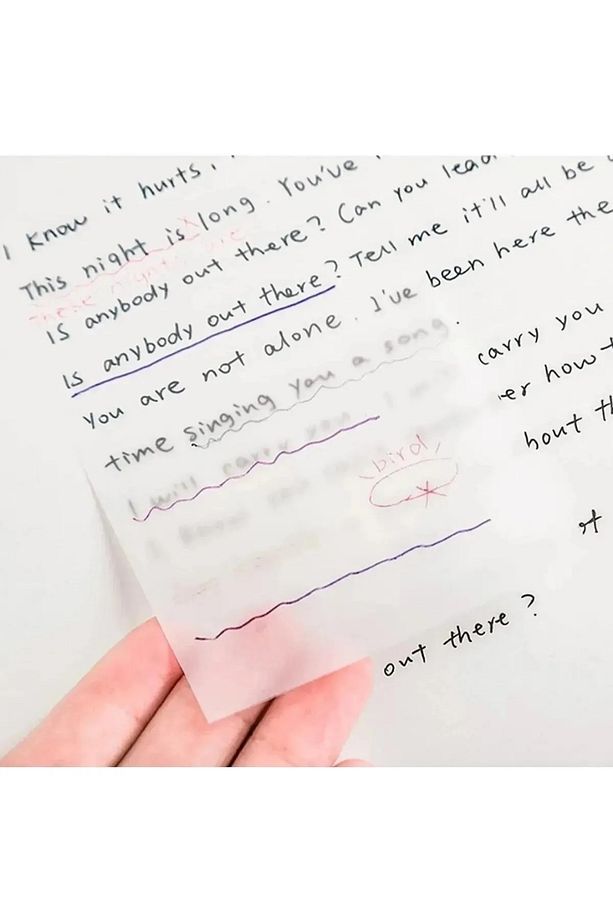 I know it hurts,
This night is long. You've
these nights are
Is anybody out there? Can you lead
Is anybody out there? Tell me it'll all be
You are not alone. I've been here the
time singing you a song.
I will carry you
carry you
er how
bird
bout th
out there?